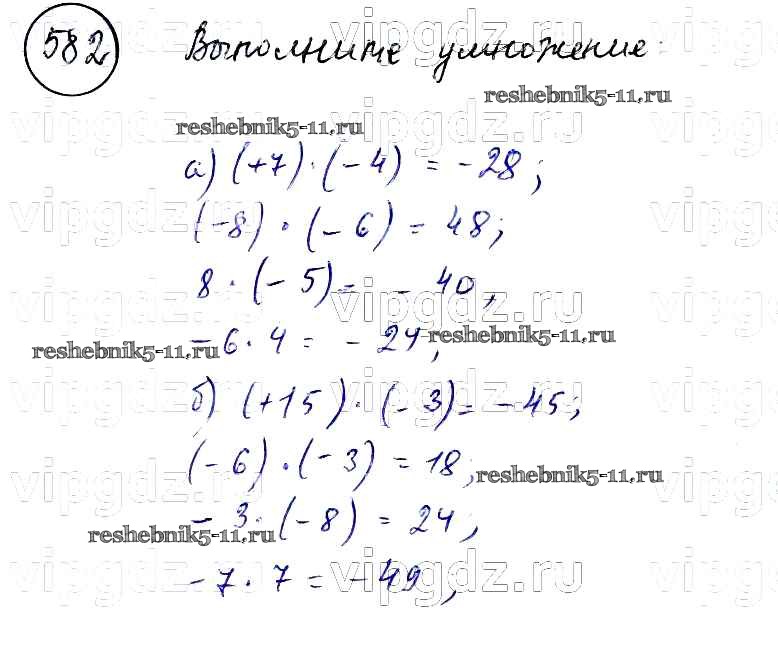 582 Выполните умножение:
reshebnik5-11.ru
reshebnik5-11.ru
а) (+7)·(-4) = -28;
(-8)·(-6) = 48;
8·(-5) = -40,
reshebnik5-11.ru
-6·4 = -24,
reshebnik5-11.ru
б) (+15)·(-3) = -45;
(-6)·(-3) = 18;
reshebnik5-11.ru
-3·(-8) = 24;
reshebnik5-11.ru
-7·7 = -49,
vipgdz.ru vipgdz.ru